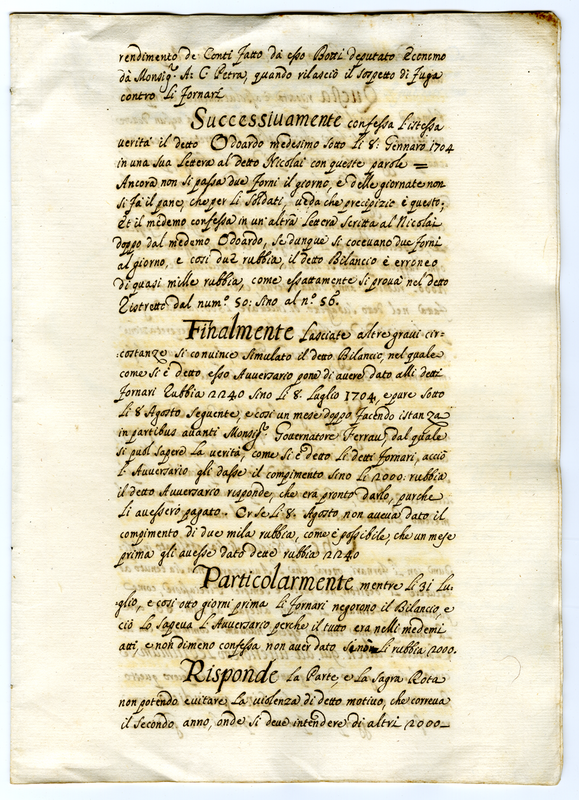 rendimento de Conti fatto da esso Bozzi deputato Economo
dà Monsig.r A: C Petra, quando rilasciò il sospetto di fuga
contro li fornari
Successiuamente confessa l'istessa
uerità il detto Odoardo medesimo sotto li 8: Gennaro 1704
in una sua lettera al detto Nicolai con queste parole =
Ancora non si passa due forni il giorno, e delle giornate non
si fà il pane, che per li soldati, ueda che precipizio è questo:
Et il medemo confessa in un'altra lettera scritta al Nicolai
doppo dal medemo Odoardo, se dunque si coceuano due forni
al giorno, e così due rubbia, il detto Bilancio è erroneo
di quasi mille rubbia, come essattamente si proua nel detto
Ristretto dal num.o 50: sino al n.o 56.
Finalmente lasciate altre graui cir-
:costanze si conuince simulato il detto Bilancio, nel quale
come si è detto esso Auuersario pone di auere dato alli detti
fornari rubbia 2240 sino li 8: Luglio 1704, e pure sotto
li 8 Agosto seguente, e così un mese doppo facendo istanza
in partibus auanti Monsig.r Gouernatore Ferrau, dal quale
si può sapere la uerità, come si è detto li detti fornari, acciò
l'Auuersario gli dasse il compimento sino li 2000: rubbia
il detto Auuersario risponde, che era pronto darlo, purche
li auessero pagato. Or se li 8: Agosto non aueua dato il
compimento di due mila rubbia, come è possibile, che un mese
prima gli auesse dato dette rubbia 2240
Particolarmente mentre li 31 Lu:
:glio, e così otto giorni prima li fornari negorono il Bilancio, e
ciò lo sapeua l'Auuersario perche il tutto era nelli medemi
atti, e non dimeno confessa non auer dato se non li rubbia 2000.
Risponde la Parte, e la Sagra Rota
non potendo euitare la uiolenza di detto motiuo, che correua
il secondo anno, onde si deue intendere di altri 2000